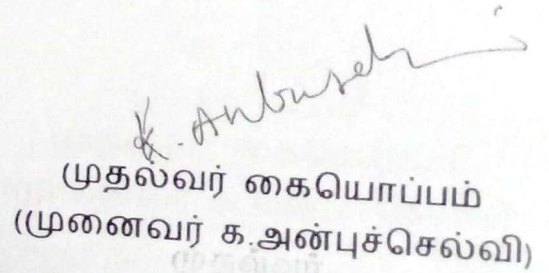 K. Anbusel
முதல்வர் கையொப்பம்
(முனைவர் க.அன்புச்செல்வி)